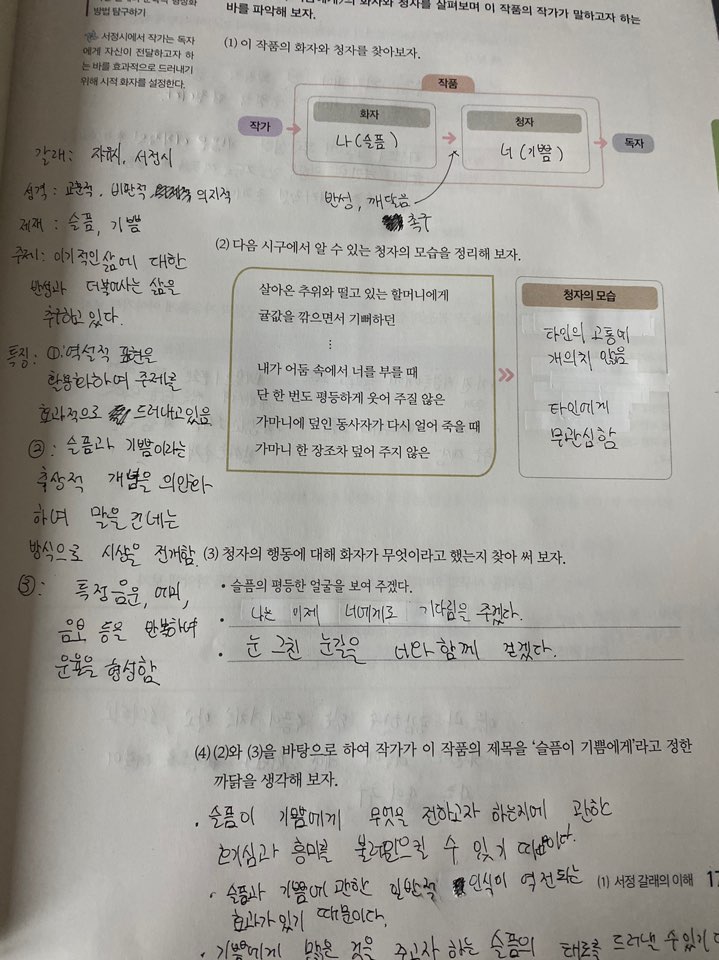 방법 탐구하기
화자와 청자를 살펴보며 이 작품의 작가가 말하고자 하는
바를 파악해 보자.
서정시에서 작가는 독자
에게 자신이 전달하고자 하
는 바를 효과적으로 드러내기
위해 시적 화자를 설정한다.
(1) 이 작품의 화자와 청자를 찾아보자.
작품
작가
화자
나(슬픔)
청자
너(기쁨)
독자
반성, 깨달음
촉구
갈래: 자유시, 서정시
성격: 교훈적, 비판적, 의지적
제재: 슬픔, 기쁨
주제: 이기적인 삶에 대한
반성과 더불어사는 삶을
추구하고 있다.
특징: ①: 역설적 표현을
활용화하여 주제를
효과적으로 드러내고있음
②: 슬픔과 기쁨이라는
추상적 개념을 의인화
하여 말을 건네는
방식으로 시상을 전개함.
③: 특정 음운, 어미,
음보 등을 반복하여
운율을 형성함
(2) 다음 시구에서 알 수 있는 청자의 모습을 정리해 보자.
살아온 추위와 떨고 있는 할머니에게
귤값을 깎으면서 기뻐하던
⋮
내가 어둠 속에서 너를 부를 때
단 한 번도 평등하게 웃어 주질 않은
가마니에 덮인 동사자가 다시 얼어 죽을 때
가마니 한 장조차 덮어 주지 않은
청자의 모습
타인의 고통에
개의치 않음
타인에게
무관심함
(3) 청자의 행동에 대해 화자가 무엇이라고 했는지 찾아 써 보자.
• 슬픔의 평등한 얼굴을 보여 주겠다.
나는 이제 너에게도 기다림을 주겠다.
• 눈 그친 눈길을 너와 함께 걷겠다.
(4) (2)와 (3)을 바탕으로 하여 작가가 이 작품의 제목을 '슬픔이 기쁨에게'라고 정한
까닭을 생각해 보자.
• 슬픔이 기쁨에게 무엇을 전하고자 하는지에 관한
호기심과 흥미를 불러일으킬 수 있기 때문이다.
• 슬픔과 기쁨에 관한 일반적 인식이 역전되는
효과가 있기 때문이다.
(1) 서정 갈래의 이해
• 기쁨에게 많은 것을 주고자 하는 슬픔의 태도를 드러낼 수 있기